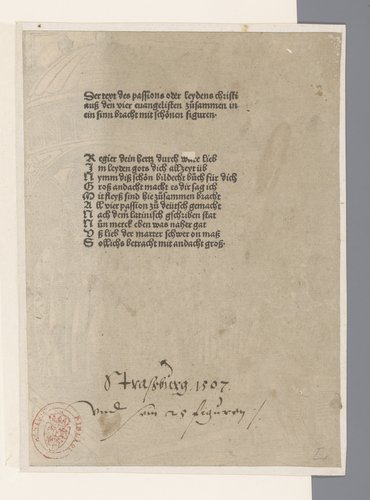 Der text des passions oder leydens christi
auß den vier euangelisten zůsammen in
ein sinn bracht mit schönen figuren.
Regier dein hertz durch ware lieb
Im leyden gots dich allzeyt ůb
Nymm diß schön bildecht bůch für dich
Groß andacht macht es dir sag ich
Mit fleyß sind hie zůsammen bracht
All vier passion zů deütsch gemacht
Nach dem latinisch gschriben stat
Nůn merck eben was naher gat
Vß lieb der marter schwer on maß
Sollichs betracht mit andacht groß.
Straßburg. 1507.
Vnd sein 25 figuren